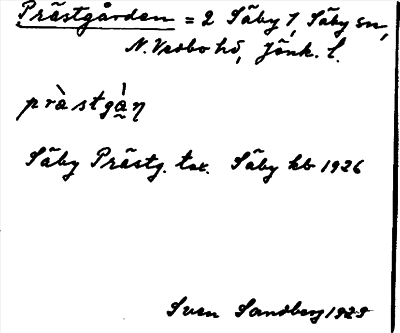 Prästgården = 2 Säby 1, Säby sn,
N. Vedbo hd, Jönk. l.
pràstgå̀n
Säby Prästg. tax. Säby kb 1926
Sven Sandberg 1929